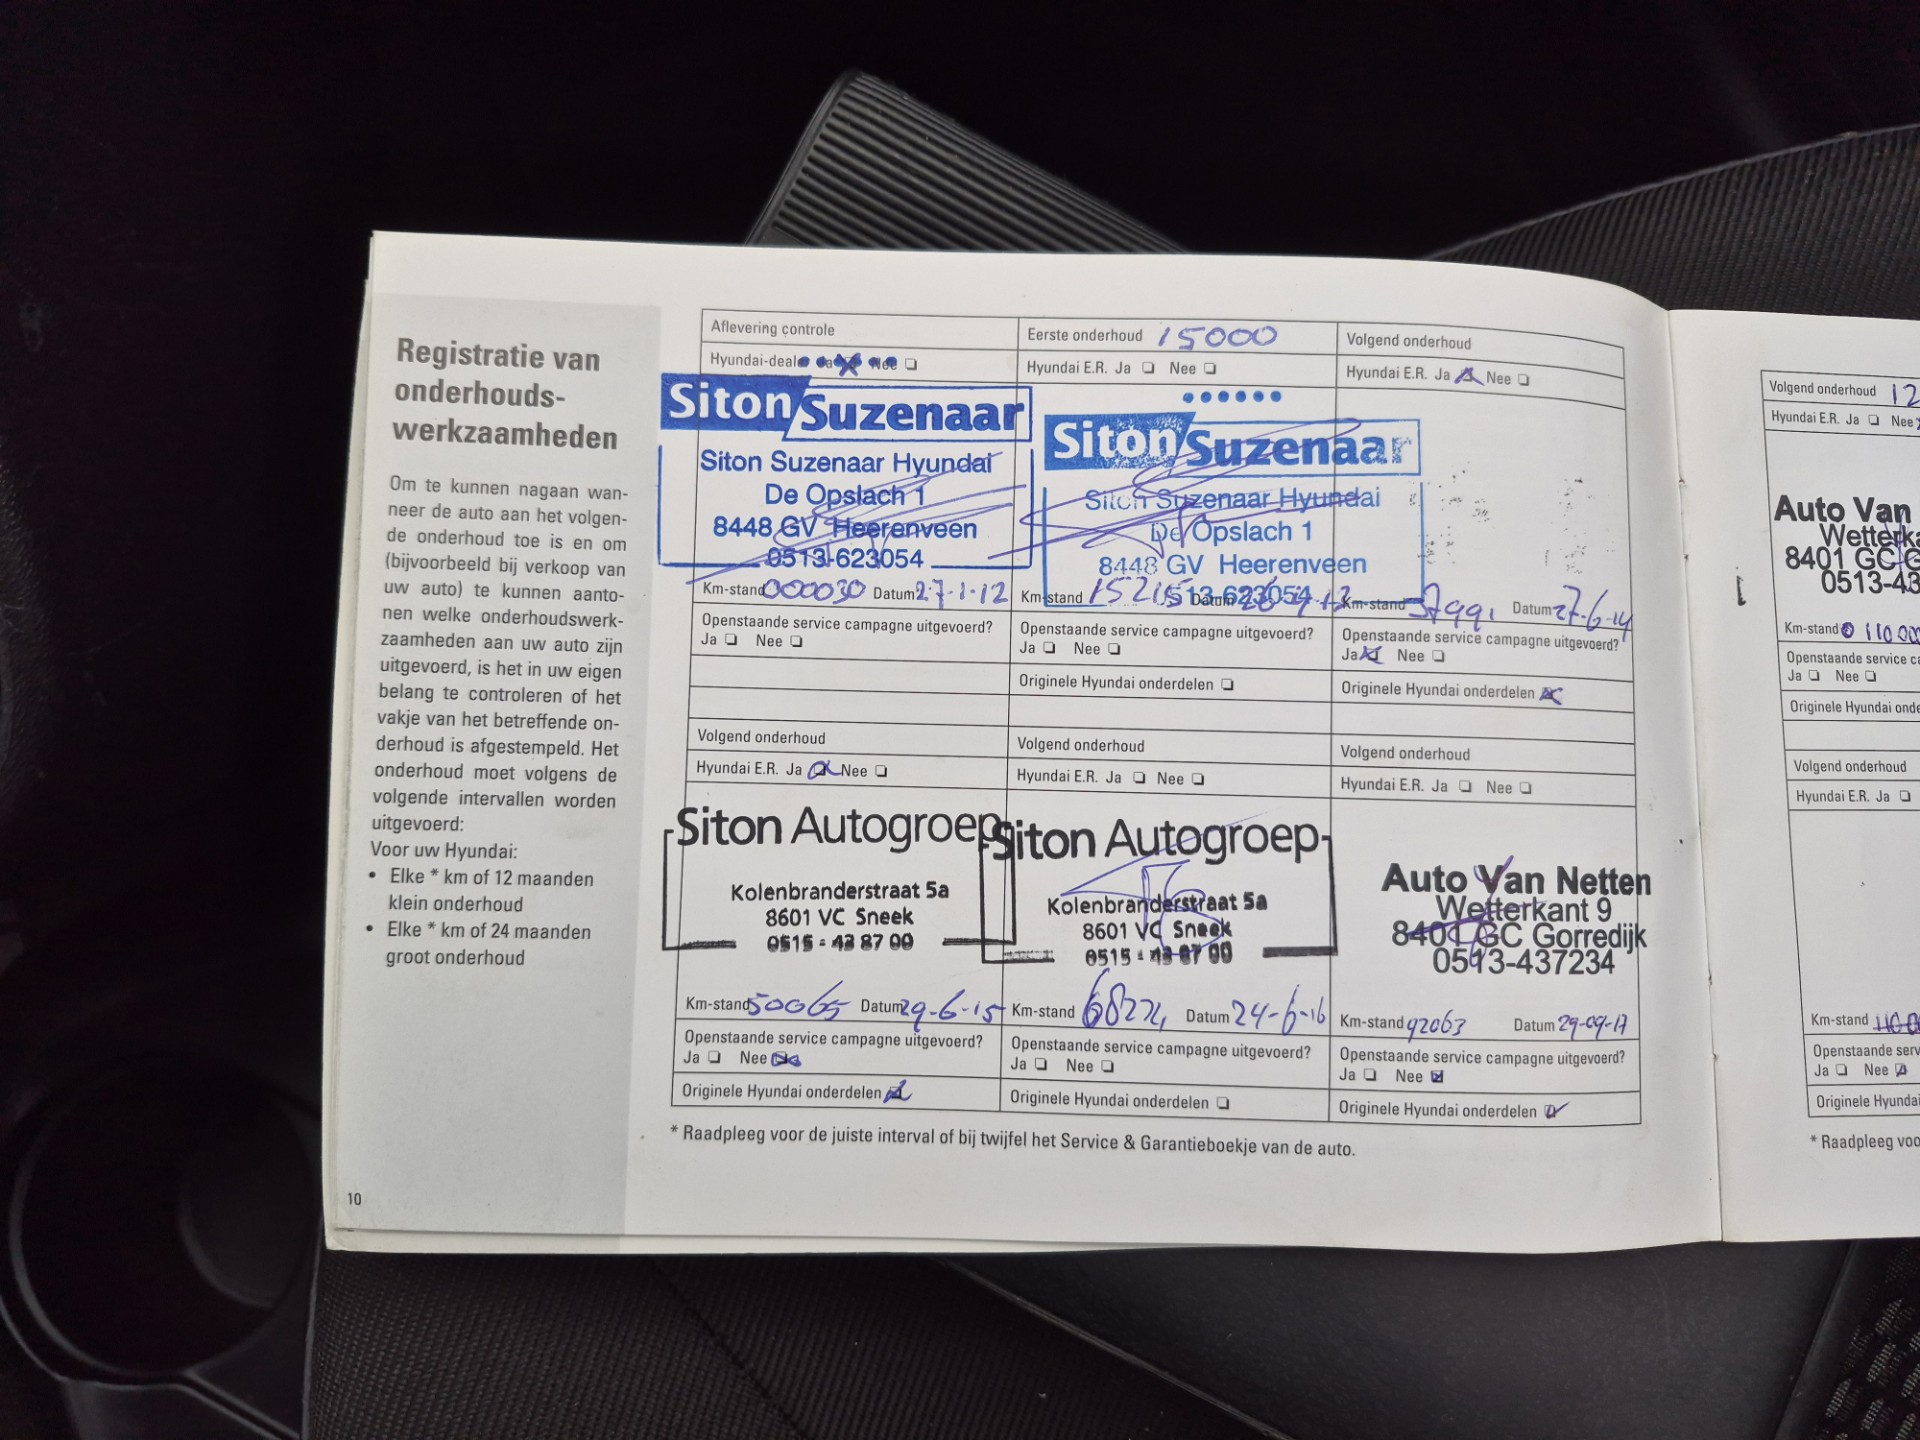 Registratie van
onderhouds-
werkzaamheden
Om te kunnen nagaan wan-
neer de auto aan het volgen-
de onderhoud toe is en om
(bijvoorbeeld bij verkoop van
uw auto) te kunnen aanto-
nen welke onderhoudswerk-
zaamheden aan uw auto zijn
uitgevoerd, is het in uw eigen
belang te controleren of het
vakje van het betreffende on-
derhoud is afgestempeld. Het
onderhoud moet volgens de
volgende intervallen worden
uitgevoerd:
Voor uw Hyundai:
• Elke * km of 12 maanden
klein onderhoud
• Elke * km of 24 maanden
groot onderhoud
10
Aflevering controle
Hyundai-dealer Ja Nee
Siton Suzenaar
Siton Suzenaar Hyundai
De Opslach 1
8448 GV Heerenveen
0513-623054
Km-stand 000030 Datum 27-1-12
Openstaande service campagne uitgevoerd?
Ja Nee
Eerste onderhoud 15000
Hyundai E.R. Ja Nee
Siton Suzenaar
Siton Suzenaar Hyundai
De Opslach 1
8448 GV Heerenveen
0513-623054
Km-stand 15215 Datum
Openstaande service campagne uitgevoerd?
Ja Nee
Originele Hyundai onderdelen
Volgend onderhoud
Hyundai E.R. Ja Nee
Km-stand Datum 27-6-14
Openstaande service campagne uitgevoerd?
Ja Nee
Originele Hyundai onderdelen
Volgend onderhoud
Hyundai E.R. Ja Nee
Siton Autogroep
Kolenbranderstraat 5a
8601 VC Sneek
0515 - 43 87 00
Km-stand 50065 Datum 29-6-15
Openstaande service campagne uitgevoerd?
Ja Nee
Originele Hyundai onderdelen
Volgend onderhoud
Hyundai E.R. Ja Nee
Siton Autogroep
Kolenbranderstraat 5a
8601 VC Sneek
0515 - 43 87 00
Km-stand Datum 24-6-16
Openstaande service campagne uitgevoerd?
Ja Nee
Originele Hyundai onderdelen
Volgend onderhoud
Hyundai E.R. Ja Nee
Auto Van Netten
Wetterkant 9
8401 GC Gorredijk
0513-437234
Km-stand 92063 Datum 29-09-17
Openstaande service campagne uitgevoerd?
Ja Nee
Originele Hyundai onderdelen
* Raadpleeg voor de juiste interval of bij twijfel het Service & Garantieboekje van de auto.
Volgend onderhoud 12
Hyundai E.R. Ja Nee
Auto Van
Wetterka
8401 GC G
0513-43
Km-stand 110 000
Openstaande service ca
Ja Nee
Originele Hyundai onde
Volgend onderhoud
Hyundai E.R. Ja
Km-stand
Openstaande serv
Ja Nee
Originele Hyundai
* Raadpleeg voo